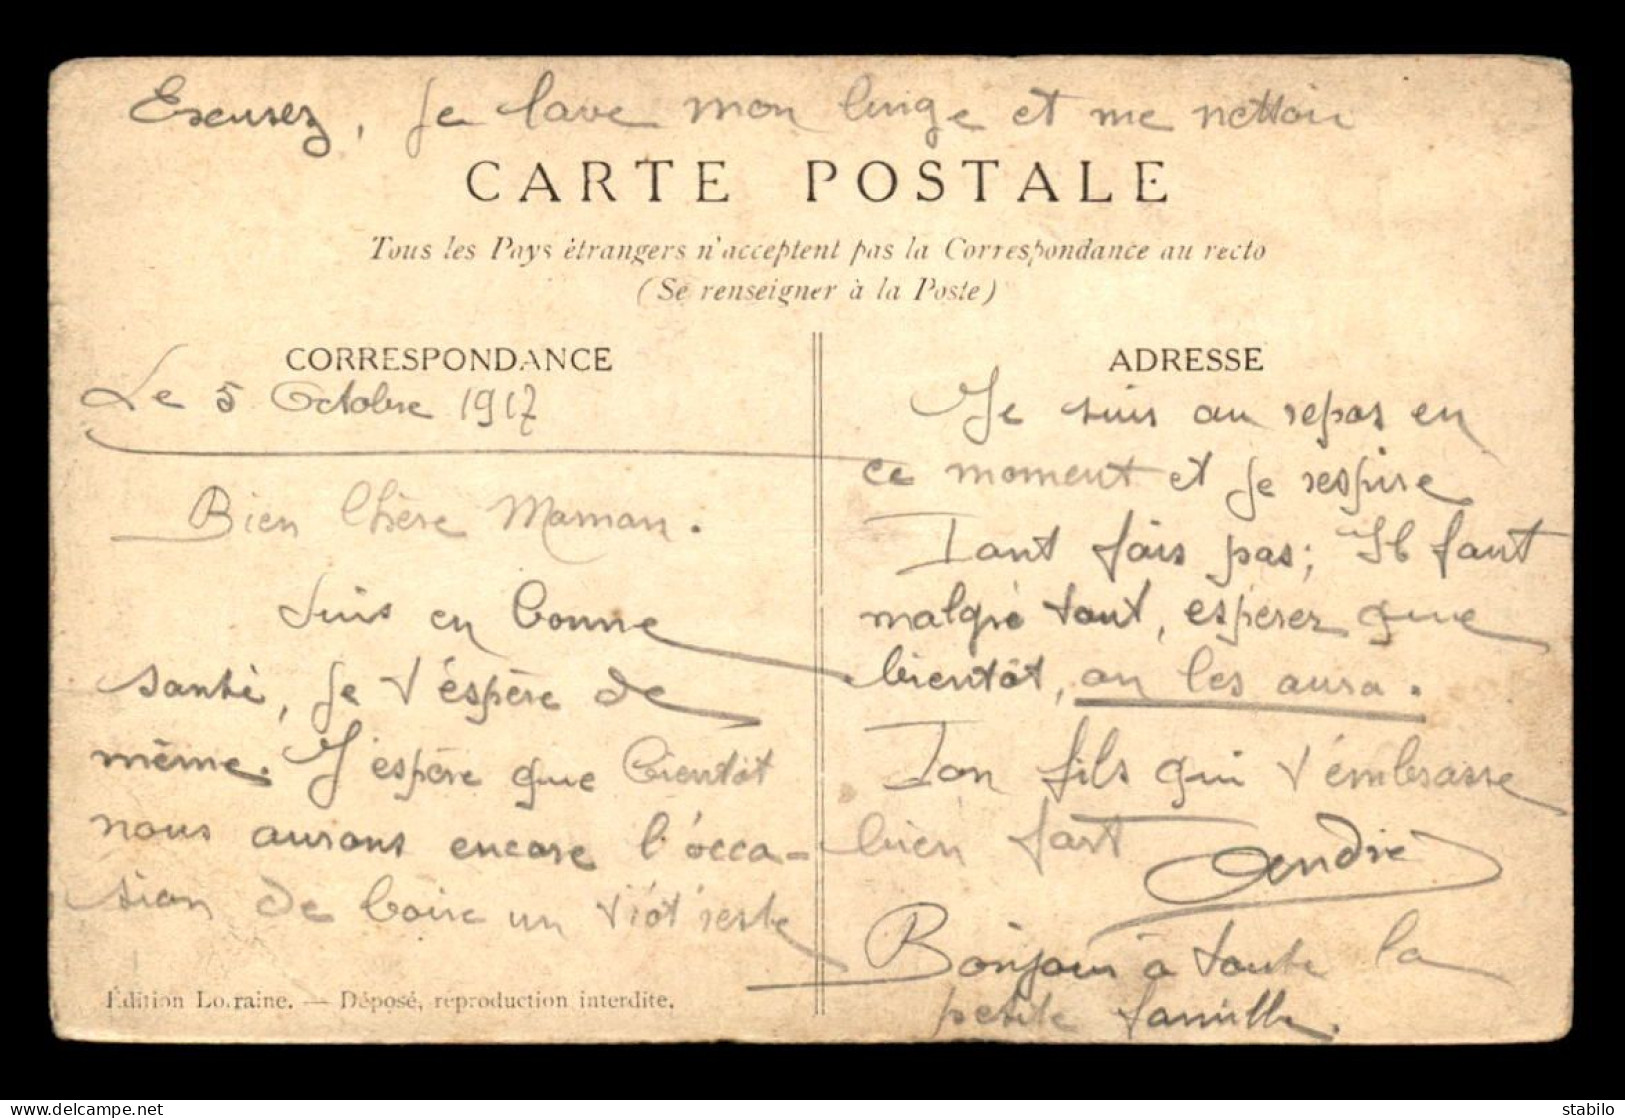 Excusez, je lave mon linge et me nettoie
CARTE POSTALE
Tous les Pays étrangers n'acceptent pas la Correspondance au recto
(Se renseigner à la Poste)
CORRESPONDANCE
Le 5 Octobre 1917
Bien Chère Maman.
Suis en bonne
santé, je t'éspère de
même. J'espère que bientôt
nous aurons encore l'occa-
sion de boire un
Édition Lorraine. — Déposé, reproduction interdite.
ADRESSE
Je suis au repos en
ce moment et je respire
Tant fois pas; Il faut
malgré tout, espérez que
bientôt, on les aura.
Ton fils qui t'embrasse
bien fort André
Bonjour à toute la
petite famille.
delcampe.net
stabilo